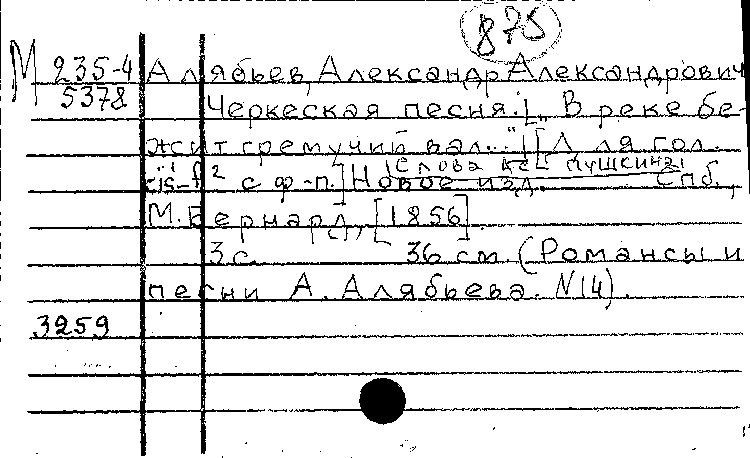 875
М 235-4 Алябьев, Александр Александрович
5378 Черкеская песня. [„В реке бе-
жит гремучий вал..."] [Для гол.
Слова А. С. Пушкина
cis-f² с ф-п.] Новое изд. Спб,
М. Бернард, [1856]
3 с. 36 см. (Романсы и
песни А. Алябьева. N 14).
3259